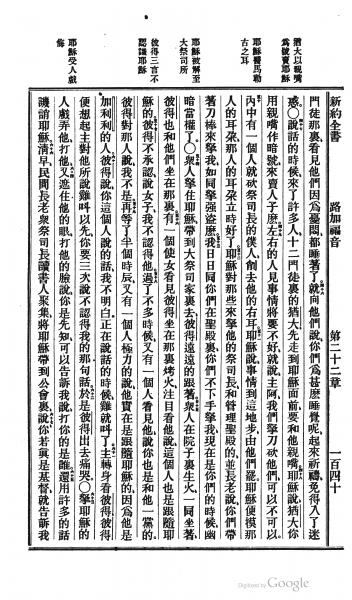 新約全書　路加福音　第二十二章　一百四十
猶大以親嘴
為號賣耶穌
耶穌醫馬勒
古之耳
耶穌被解至
大祭司所
彼得三言不
認識耶穌
耶穌受人戲
侮
門徒那裏看見他們因為憂悶都睡著了就向他們說你們為甚麼睡覺呢起來祈禱免得入了迷
惑○說話的時候來了許多人十二門徒裏的猶大先走到耶穌面前要和他親嘴耶穌說猶大你
用親嘴作暗號來賣人子麼左右的人見事情將要不好就說主阿我們拏刀砍他們可以不可以
內中有一個人就砍祭司長的僕人削去他的右耳耶穌說事情到這地步由他們罷耶穌便摸那
人的耳朶那人的耳朶立時好了耶穌對那些來拏他的祭司長和督理聖殿的並長老說你們帶
著刀棒來拏我如同拏強盜麼我日日同你們在聖殿裏你們不下手拏我現在是你們的時候幽
暗當權了○衆人拏住耶穌帶到大祭司家裏去彼得遠遠的跟著衆人在院子裏生火一同坐著
彼得也和他們坐在那裏有一個使女看見彼得坐在那裏烤火注目看他說這個人也是跟隨耶
穌的彼得不承認說女子我不認得他過了不多時候又有一個人看見他說你也是和他一黨的
彼得對那人說我不是再等了半個時辰又有一個人極力的說他實在是跟隨耶穌的因為他是
加利利的人彼得說你這個人說的話我不明白正在說話的時候雞就叫了主轉身看彼得彼得
便想起主對他所說雞叫以先你要三次說不認得我的那句話於是彼得出去痛哭○拏耶穌的
人戲弄他打他又遮住他的眼打他的臉說你是先知可以告訴我說打你的是誰還用許多的話
譏誚耶穌清早民間長老衆祭司長讀書人聚集將耶穌帶到公會裏說你若眞是基督就告訴我
Digitized by Google